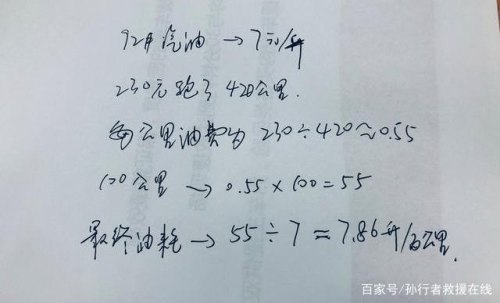 92# 汽油 → 7元/升
230元跑了 420公里.
每公里油费为 230÷420≈0.55
100公里 → 0.55×100=55
最终油耗 → 55÷7=7.86升/百公里.
百家号/孙行者救援在线